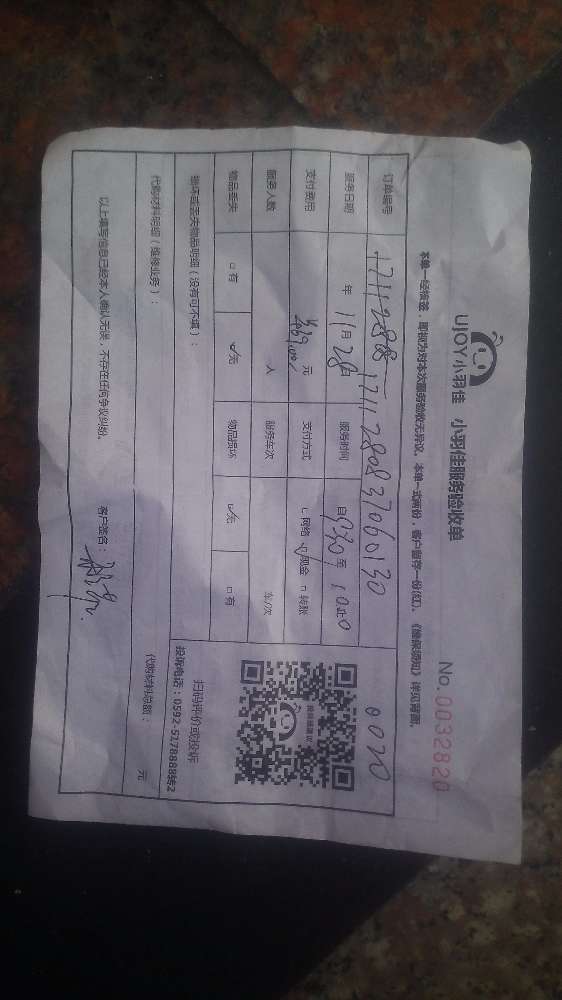 UJOY小羽佳 小羽佳服务验收单
No. 0032820
本单一经核签，即视为对本次服务验收无异议，本单一式两份，客户留存一份(红)，《维保须知》详见背面。
订单编号
服务日期 年 11月28日 服务时间 自 至
支付费用 元 支付方式 网络 现金 转账
服务人数 人 服务车次 车/次
物品丢失 有 无 物品损坏 无 有
扫码评价或投诉
投诉电话：0592-5178888转2
损坏或丢失物品明细（没有可不填）：
代购材料明细（维修业务）：
代购材料总额： 元
以上填写信息已经本人确认无误，不存在任何争议纠纷。 客户签名：